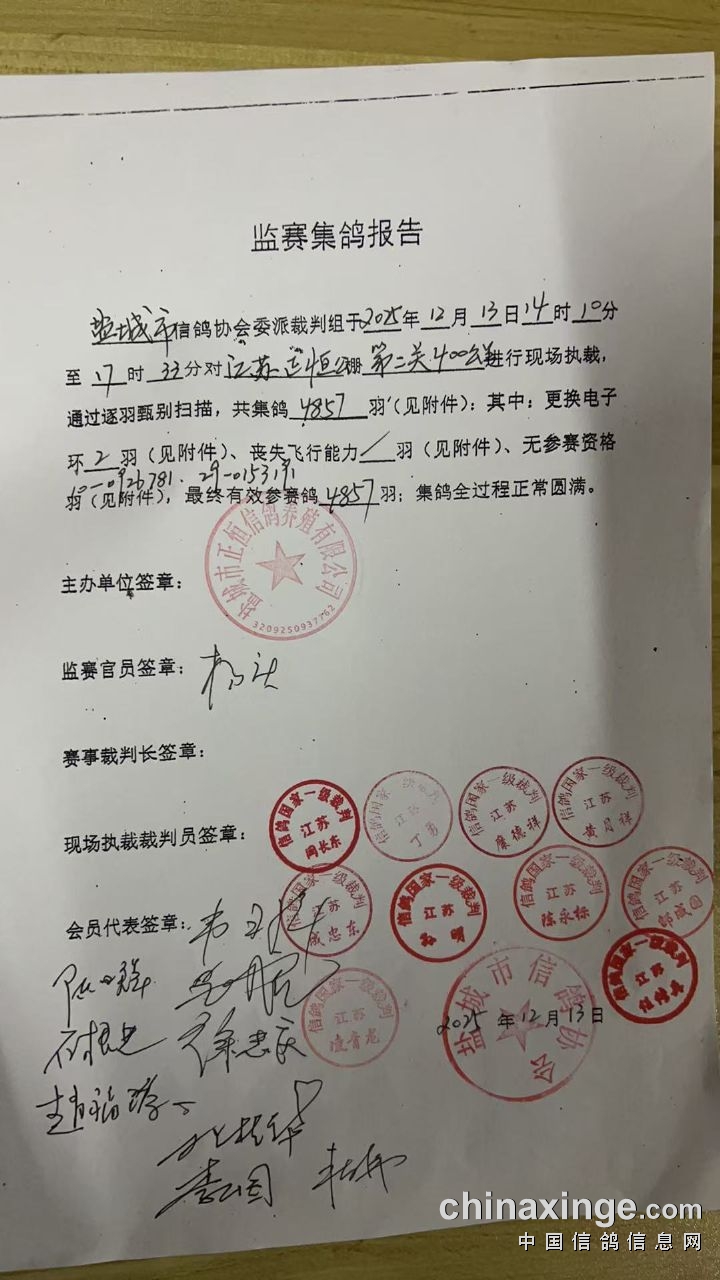 监赛集鸽报告
盐城市信鸽协会委派裁判组于2025年12月13日14时10分
至17时33分对江苏正恒公棚第二关400公里进行现场执裁,
通过逐羽甄别扫描,共集鸽4857羽(见附件):其中:更换电子
环2羽(见附件)、丧失飞行能力/羽(见附件)、无参赛资格
羽(见附件),最终有效参赛鸽4857羽;集鸽全过程正常圆满。
盐城市正恒信鸽养殖有限公司
3209250937762
主办单位签章:
监赛官员签章:
赛事裁判长签章:
现场执裁裁判员签章:
信鸽国家一级裁判 江苏
信鸽国家 江苏 丁勇
信鸽国家一级裁判 江苏 廉德祥
信鸽国家一级裁判 江苏 黄月祥
会员代表签章:
信鸽国家一级裁判 江苏 成忠东
信鸽国家一级裁判 江苏
信鸽国家一级裁判 江苏 陈永标
信鸽国家一级裁判 江苏
信鸽国家一级裁判 江苏
信鸽国家一级裁判 江苏
盐城市信鸽协会
2025年12月13日
徐忠庆
chinaxinge.com
中国信鸽信息网